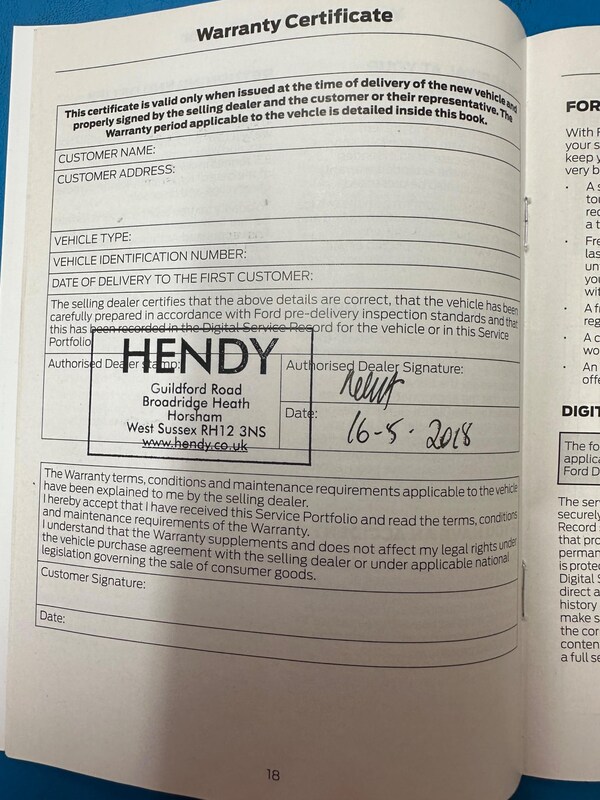 Warranty Certificate
This certificate is valid only when issued at the time of delivery of the new vehicle and
properly signed by the selling dealer and the customer or their representative. The
Warranty period applicable to the vehcle is detailed inside this book.
CUSTOMER NAME:
CUSTOMER ADDRESS:
VEHICLE TYPE:
VEHICLE IDENTIFICATION NUMBER:
DATE OF DELIVERY TO THE FIRST CUSTOMER:
The selling dealer certifies that the above details are correct, that the vehicle has been
carefully prepared in accordance with Ford pre-delivery inspection standards and that
this has been recorded in the Digital Service Record for the vehicle or in this Service
Portfolio
Authorised Dealer stamp:
HENDY
Guildford Road
Broadridge Heath
Horsham
West Sussex RH12 3NS
www.hendy.co.uk
Authorised Dealer Signature:
Date:
16-5-2018
The Warranty terms, conditions and maintenance requirements applicable to the vehicle
have been explained to me by the selling dealer.
I hereby accept that I have received this Service Portfolio and read the terms, conditions
and maintenance requirements of the Warranty.
I understand that the Warranty supplements and does not affect my legal rights under
the vehicle purchase agreement with the selling dealer or under applicable national
legislation governing the sale of consumer goods.
Customer Signature:
Date:
18
FOR
With
your s
keep y
very b
A s
tou
rec
a t
Fre
las
un
you
wit
A f
reg
A c
wo
An
offe
DIGIT
The fo
applica
Ford D
The ser
securely
Record
that pro
perman
is prote
Digital S
direct a
history
make s
the cor
conten
a full se